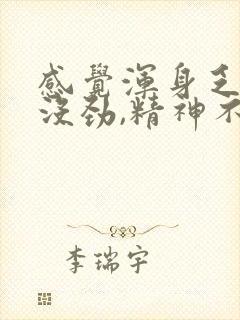 感覺渾身乏
沒劲,精神不
李瑞宇